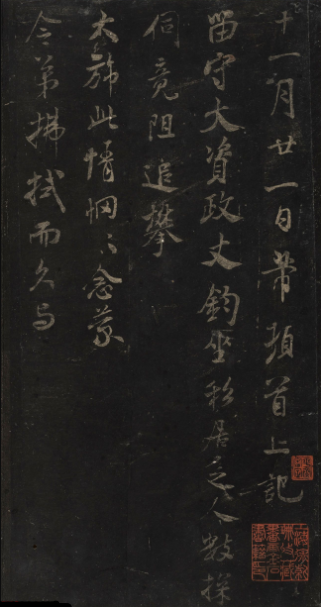 十一月廿一日芾頓首上記
留守大資政丈鈞坐私居乏人數探
伺竟阻追攀
大旆此情惘〻念蒙
令弟拂拭而久与